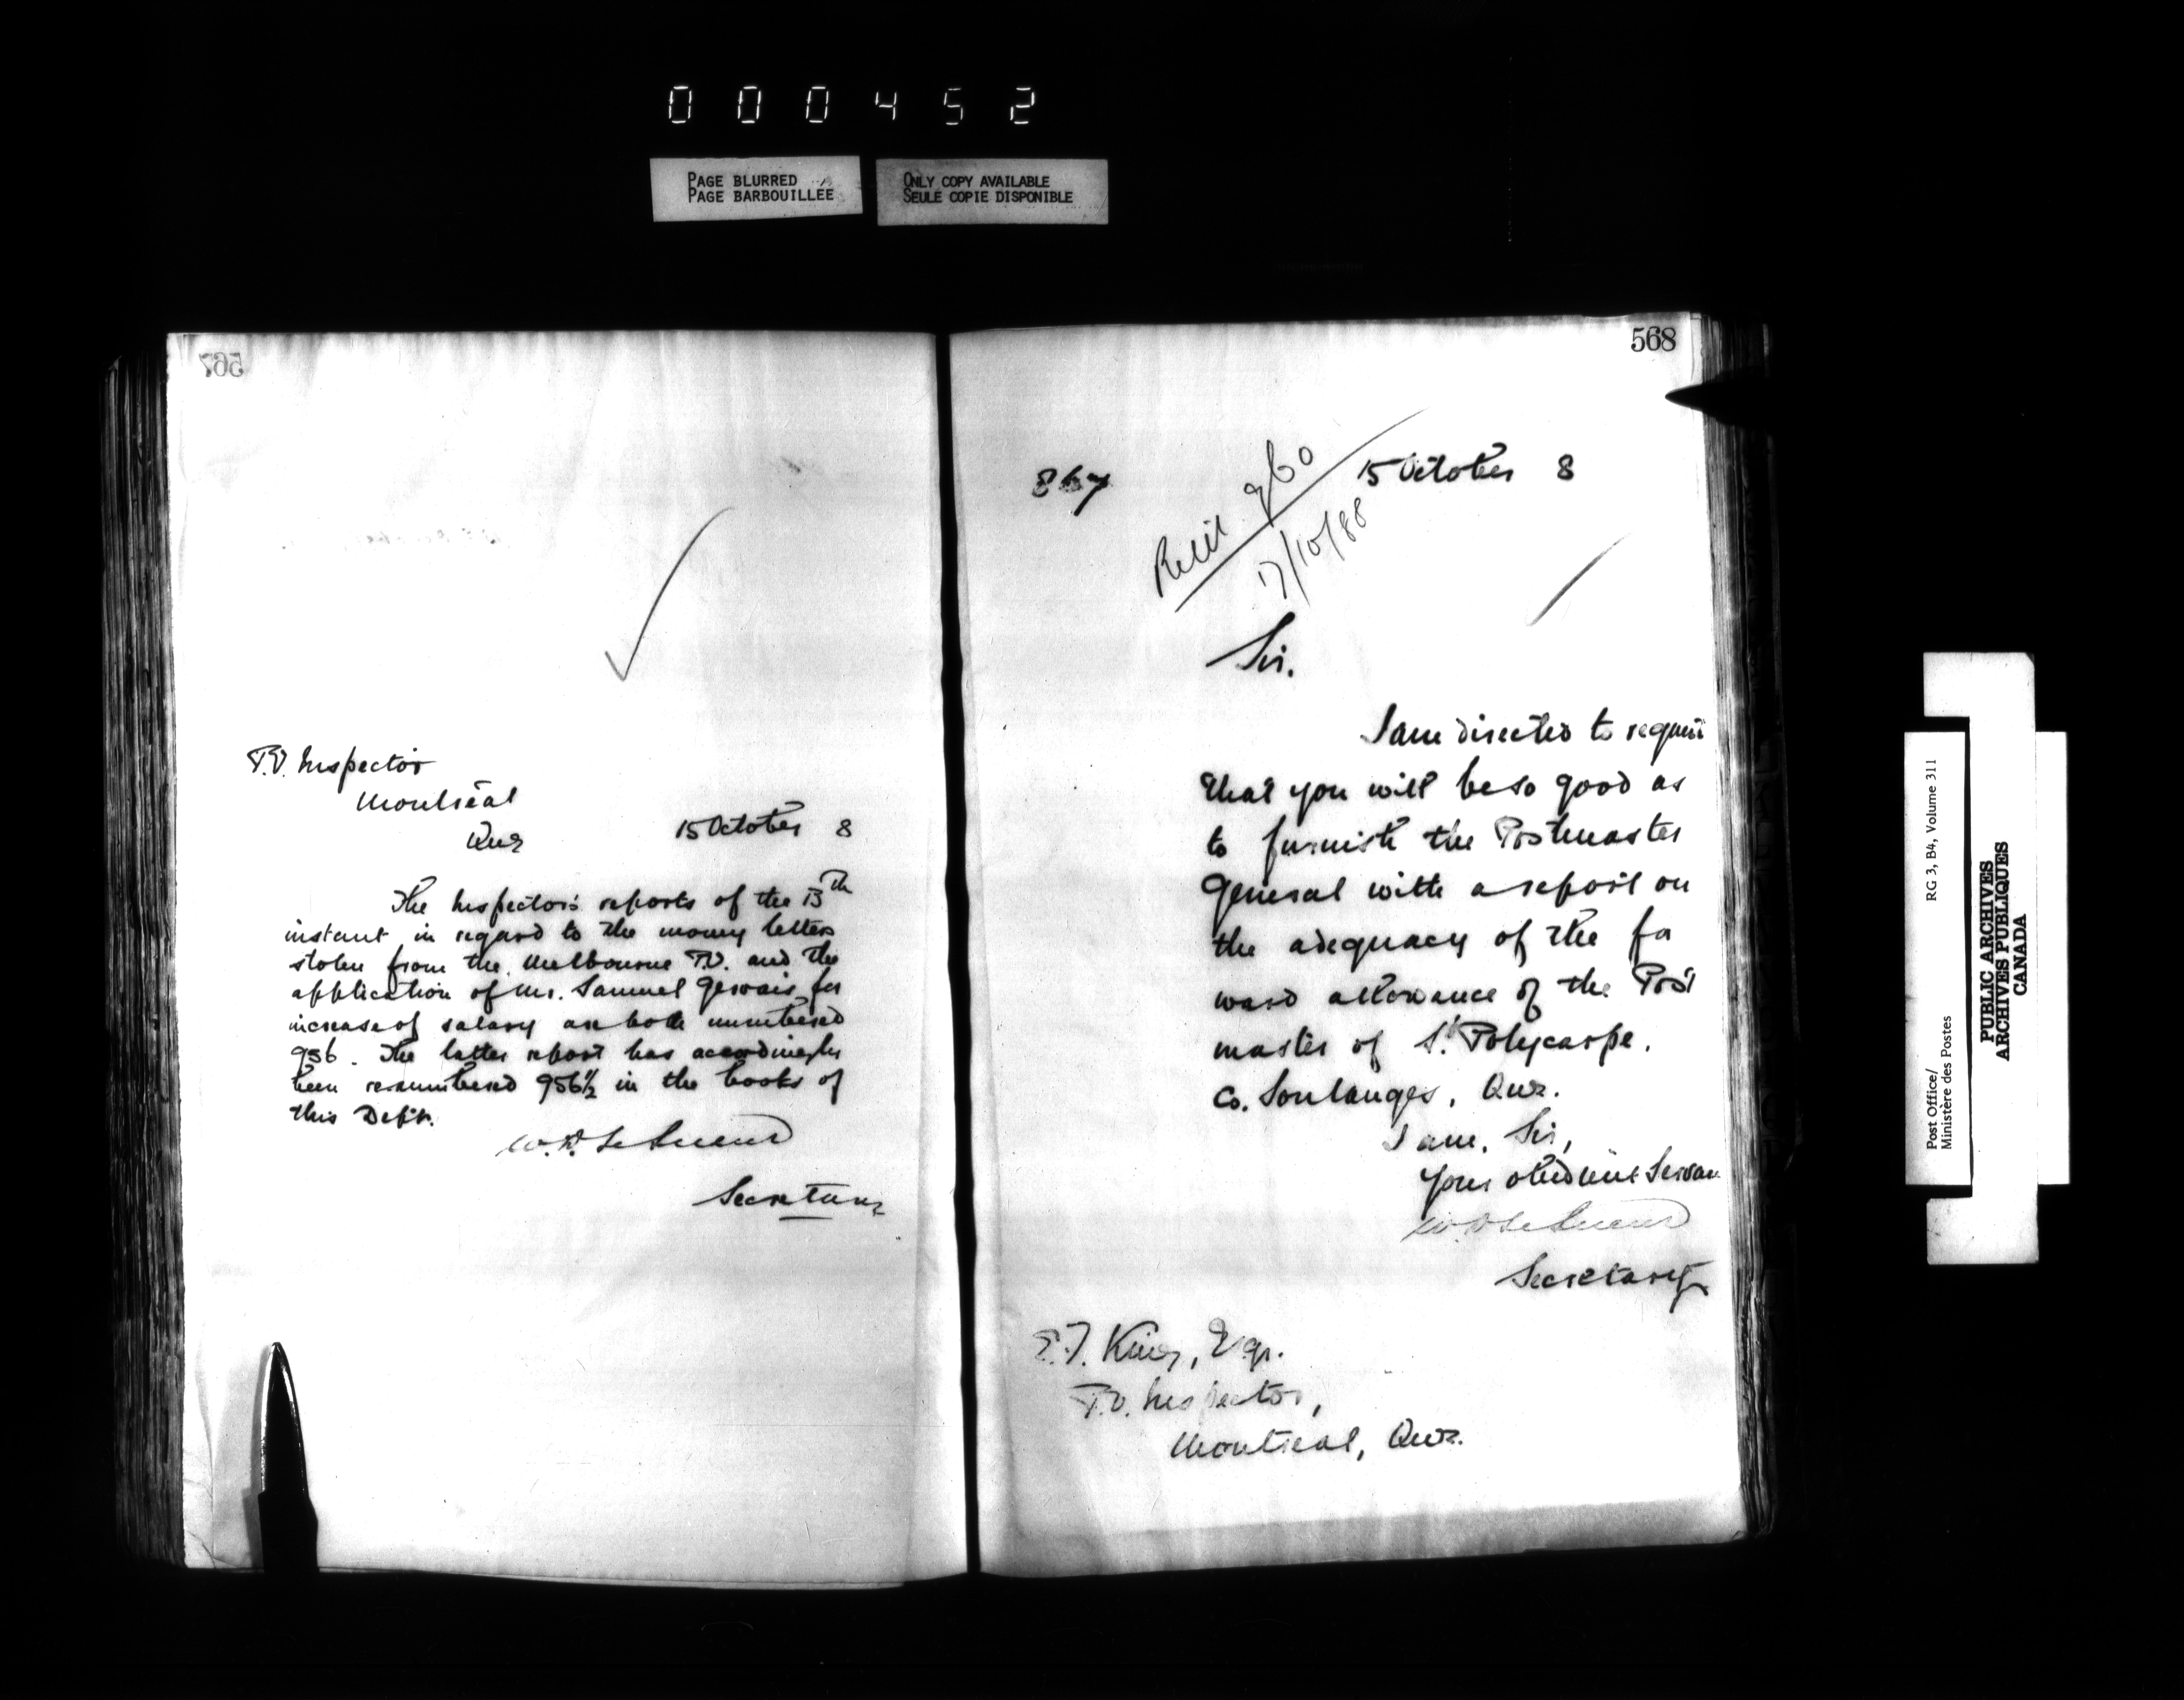 000452
PAGE BLURRED
PAGE BARBOUILLEE
ONLY COPY AVAILABLE
SEULE COPIE DISPONIBLE
567
P.O. Inspector
Montreal
Que
15 October 8
The Inspector's reports of the 13th
instant in regard to the money letters
stolen from the Melbourne P.O. and the
application of Mr. Samuel Gervais for
increase of salary are both numbered
956. The latter report has accordingly
been renumbered 956½ in the books of
this Dept.
W. D. LeSueur
Secretary
568
867
15 October 8
960
17/10/88
Sir.
I am directed to request
that you will be so good as
to furnish the Postmaster
General with a report on
the adequacy of the for
ward allowance of the Post
master of St. Polycarpe.
Co. Soulanges, Que.
I am, Sir,
Your obedient Servan
W. D. LeSueur
Secretary
E.F. King, Esqr.
P.O. Inspector,
Montreal, Que.
Post Office/
Ministère des Postes
RG 3, B4, Volume 311
PUBLIC ARCHIVES
ARCHIVES PUBLIQUES
CANADA